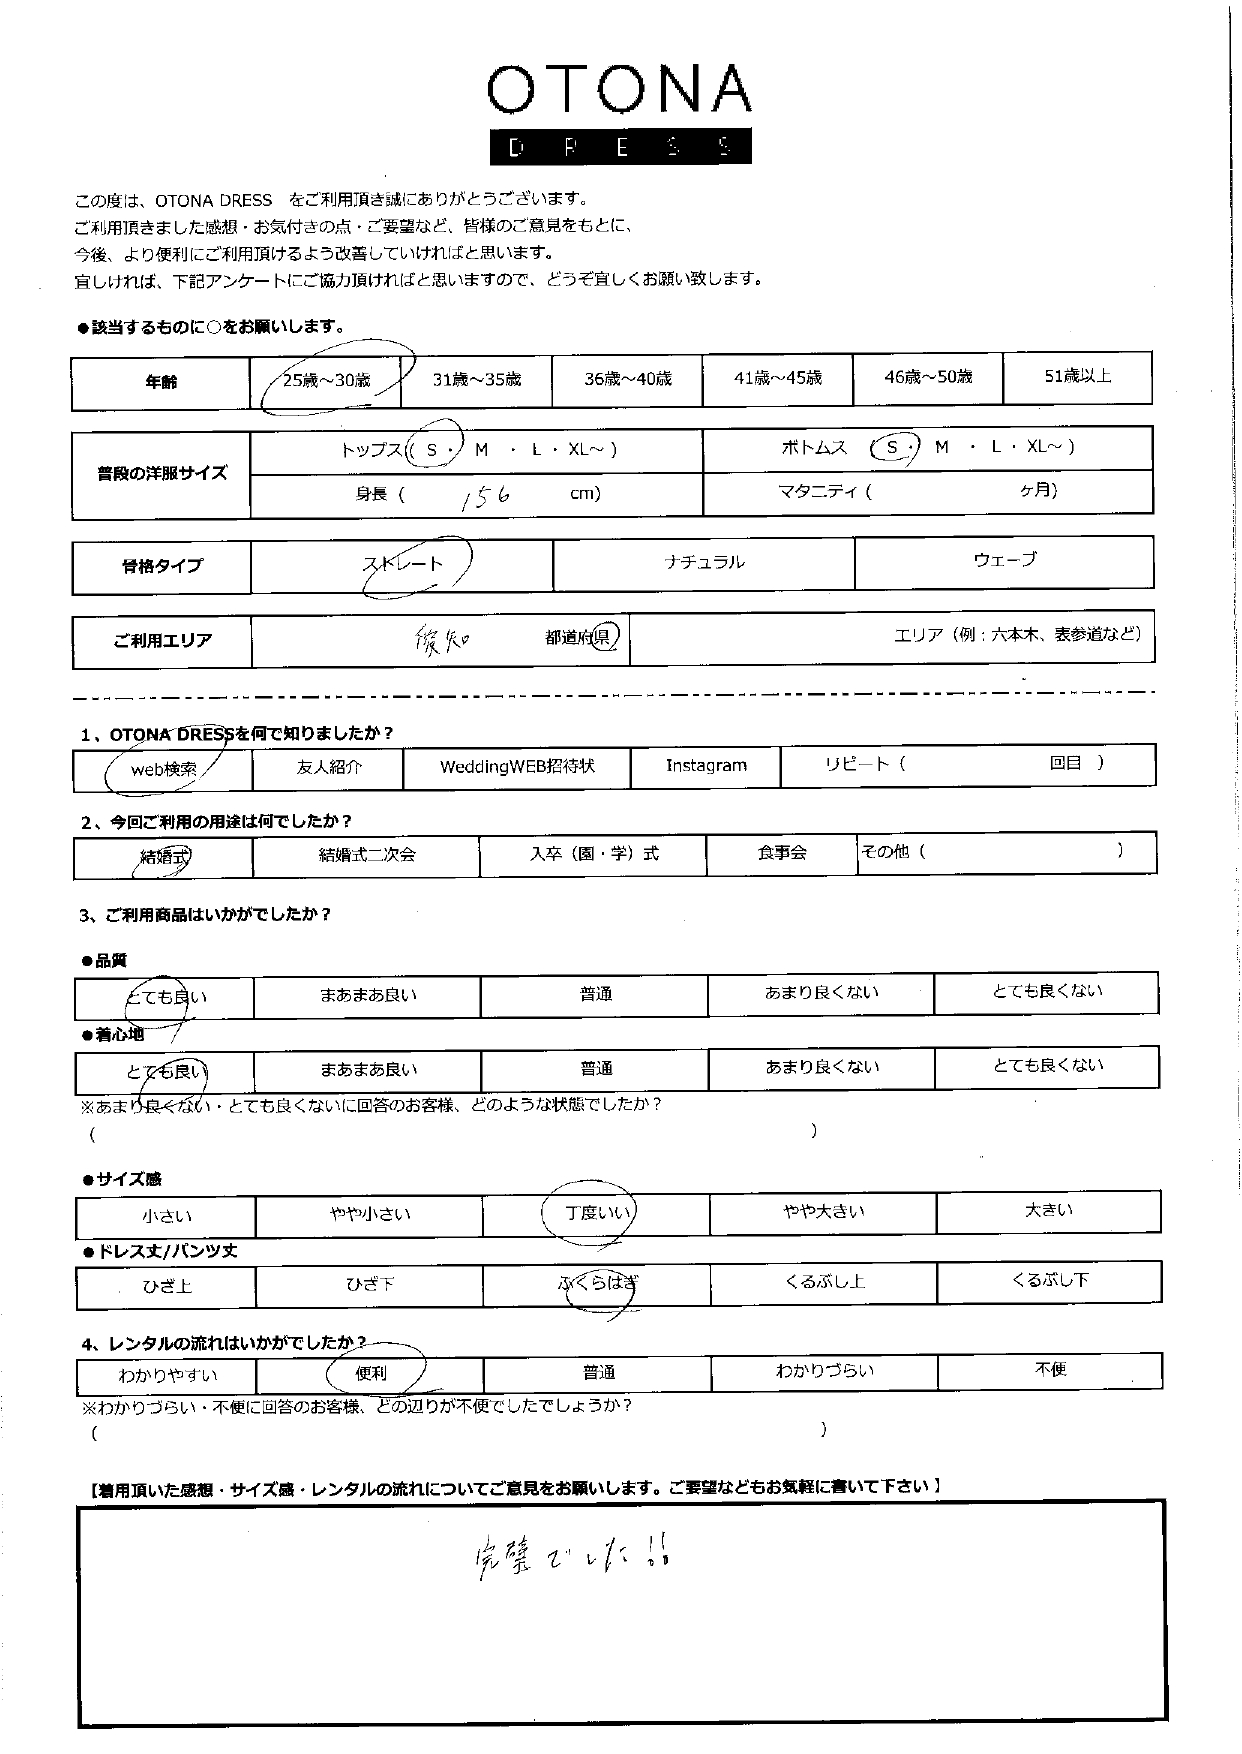 OTONA
DRESS
この度は、OTONA DRESS をご利用頂き誠にありがとうございます。
ご利用頂きました感想・お気付きの点・ご要望など、皆様のご意見をもとに、
今後、より便利にご利用頂けるよう改善していければと思います。
宜しければ、下記アンケートにご協力頂ければと思いますので、どうぞ宜しくお願い致します。
●該当するものに○をお願いします。
年齢 25歳～30歳 31歳～35歳 36歳～40歳 41歳～45歳 46歳～50歳 51歳以上
普段の洋服サイズ トップス( S ・ M ・ L ・ XL～ ) ボトムス ( S ・ M ・ L ・ XL～ )
身長 ( 156 cm) マタニティ ( ヶ月)
骨格タイプ ストレート ナチュラル ウェーブ
ご利用エリア 都道府県 エリア（例：六本木、表参道など）
1、OTONA DRESSを何で知りましたか？
web検索 友人紹介 WeddingWEB招待状 Instagram リピート ( 回目 )
2、今回ご利用の用途は何でしたか？
結婚式 結婚式二次会 入卒（園・学）式 食事会 その他 ( )
3、ご利用商品はいかがでしたか？
●品質
とても良い まあまあ良い 普通 あまり良くない とても良くない
●着心地
とても良い まあまあ良い 普通 あまり良くない とても良くない
※あまり良くない・とても良くないに回答のお客様、どのような状態でしたか？
( )
●サイズ感
小さい やや小さい 丁度いい やや大きい 大きい
●ドレス丈/パンツ丈
ひざ上 ひざ下 ふくらはぎ くるぶし上 くるぶし下
4、レンタルの流れはいかがでしたか？
わかりやすい 便利 普通 わかりづらい 不便
※わかりづらい・不便に回答のお客様、どの辺りが不便でしたでしょうか？
( )
【着用頂いた感想・サイズ感・レンタルの流れについてご意見をお願いします。ご要望などもお気軽に書いて下さい】
完璧でした!!